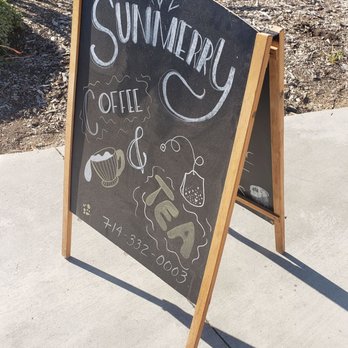 SUNMERRY
COFFEE
&
TEA
714-332-0003